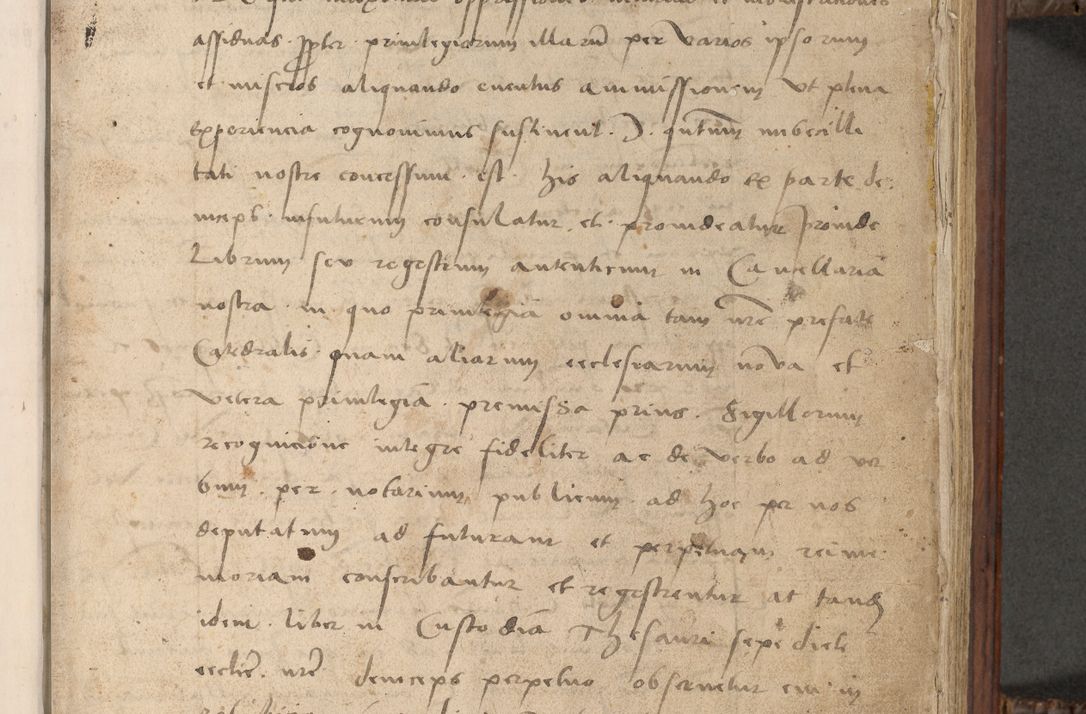 assiduas propter privilegiorum illarum per varios ipsorum
et miseros aliquando eventus ammissionem ut plena
Experiencia cognovimus sustinent. quantum imbecilli
tati nostre concessum est his aliquando ex parte de
inceps infuturum consulatur et provideatur proinde
Librum seu regestrum autenticum in Cancellaria
nostra in quo privilegia omnia tam nre prefate
Catedralis quam aliarum ecclesiarum nova et
vetera privilegia premissa prius Sigillorum
recognicione integre fideliter ac de verbo ad ver
bum per notarium publicum ad hoc per nos
deputatum ad futuram et perpetuam rei me
moriam conscribantur et regestrentur at tandem
idem liber in Custodia Thesauri sepe dicte
ecclie nre deinceps perpetuo observetur cum in